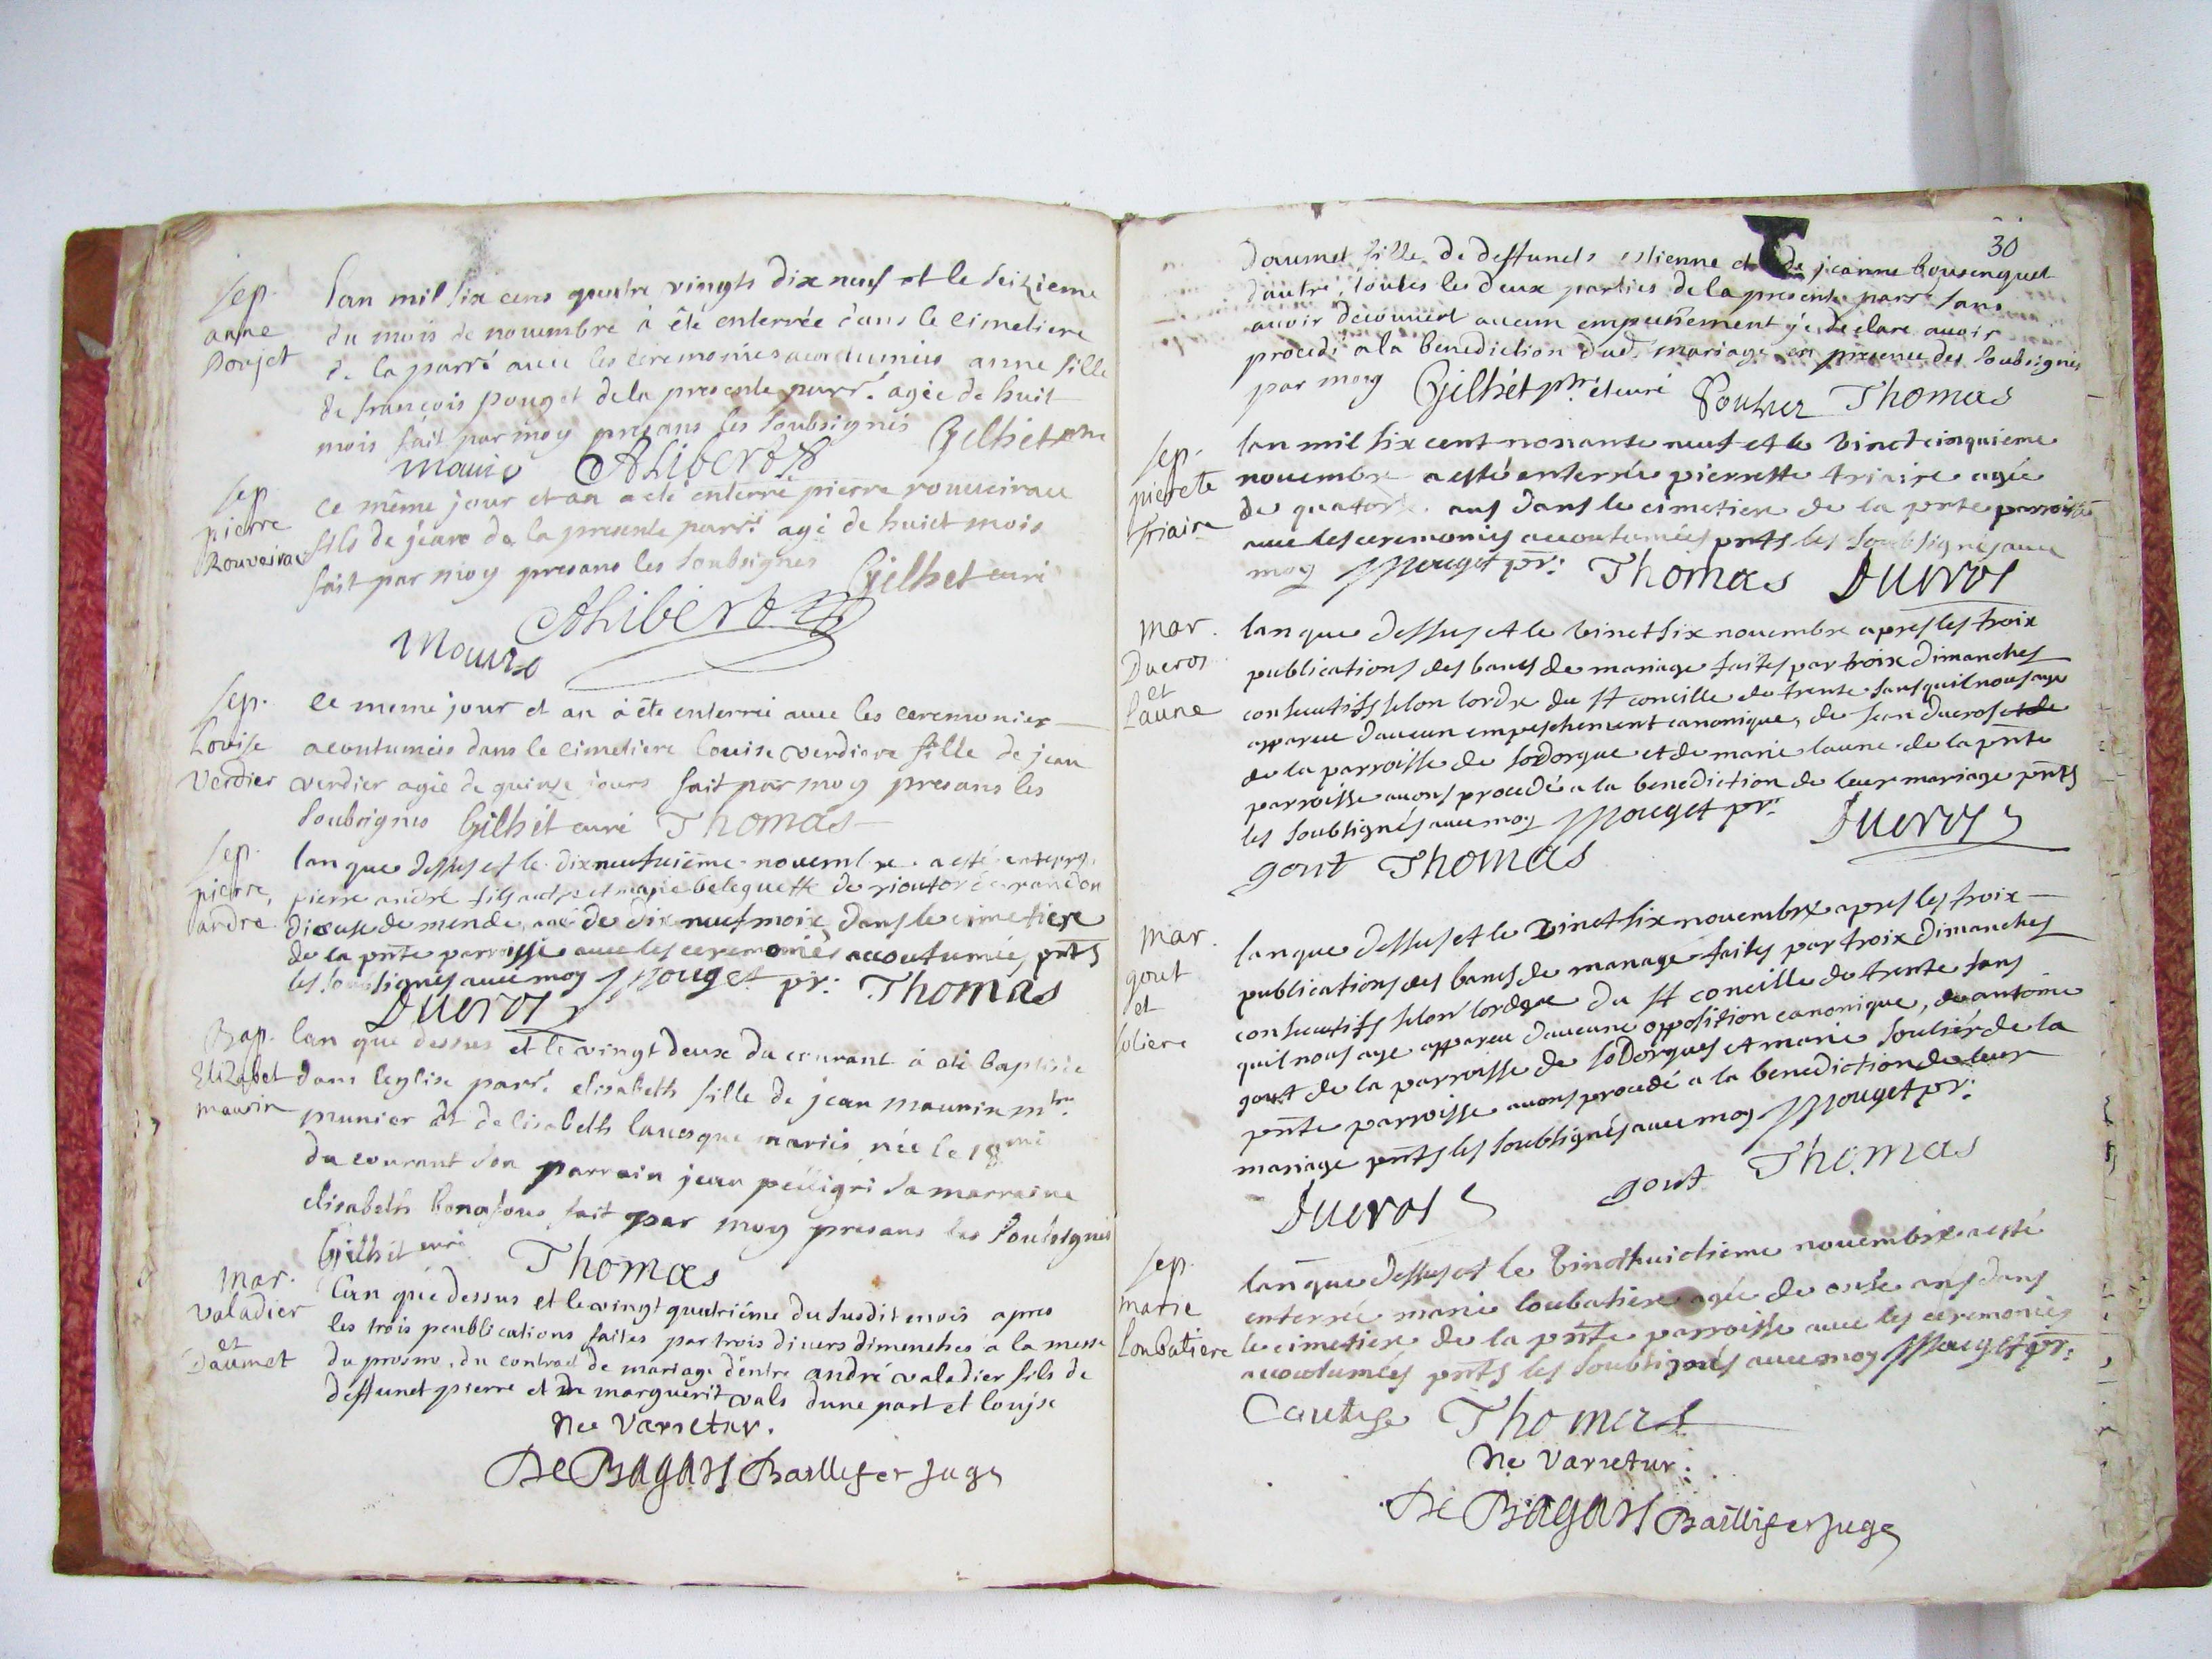 Sep. anne Poujet
lan mil six cens quatre vingts dix neuf et le seizieme
du mois de novembre à éte enterrée dans le cimetiere
de la parré avec les ceremonies acoutumées anne fille
de françois pouget de la presente parr. agée de huit
mois fait par moy presans les soubsignés Gilhet ptre
Maurin Aliberts
Sep pierre Rouveirac
ce même jour et an a eté enterré pierre rouveirac
fils de jean de la presente parr. agé de huict mois
fait par moy presans les soubsignes Gilhet curé
Maurin Aliberts
Sep. Louise Verdier
ce meme jour et an à éte enterrée avec les ceremonies
acoutumées dans le cimetiere louise verdiere fille de jean
verdier agée de quinze jours fait par moy presans les
soubsignes Gilhit curé Thomas
Sep. pierre andre
lan que dessus et le dixneufvieme novembre a esté enterré
pierre andré fils et marie de randon
diocese de mende agé de dix neuf mois dans le cimetiere
de la pnte parroisse avec les ceremonies accoutumées pnts
les soubsignés avec moy Pouget pr: Thomas
Ducros
Bap. Elizabet maurin
lan que dessus et le vingt deux du courant à eté baptisée
dans leglise parr. elisabeth fille de jean maurin mtre
munier et delisabeth lauesque mariés née le 18me
du courant son parrain jean pelligri sa marraine
elisabeth bonafous fait par moy presans les soubsignés
Gilhit curé Thomas
Mar. valadier et Daumet
lan que dessus et le vingt quatriéme du susdit mois apres
les trois peublications faites par trois divers dimenches à la messe
du prosne, du contract de mariage d'entre andré valadier fils de
deffunct pierre et de marguerit vals dune part et louise
Ne Varietur.
De Bagars Baillif et Juge
30
Daumet fille de deffuncts estienne et de jeanne bousenquet
dautre, toutes les deux parties de la presente parr. sans
avoir decouvert aucun empechement je declare avoir
procedé a la benediction dud. mariage en presence des soubsignés
par moy Gilhet ptre et curé Soulier Thomas
Sep. pierete triaire
lan mil six cent nonante neuf et le vinct cinquieme
novembre a esté enterrée pierrette triaire agée
de quatorse ans dans le cimetiere de la pnte parroisse
avec les ceremonies accoutumées pnts les soubsignés avec
moy Pouget pr: Thomas Ducros
mar. Ducros et laune
lan que dessus et le vinct six novembre apres les troix
publications des bancs de mariage faites par troix dimanches
consecutifs selon lordre du st concille de trente sans quil nous aye
apparu daucun empeschement canonique, de jean ducros et de
de la parroisse de sodorgue et de marie laune de la pnte
parroisse avons procedé a la benediction de leur mariage pnts
les soubsignés avec moy Pouget pr: Ducros
gout Thomas
mar. gout et soliere
lan que dessus et le vinct six novembre apres les troix
publications des bancs de mariage faites par troix dimanches
consecutifs selon lordre du st concille de trente sans
quil nous aye apparu daucune opposition canonique, de antoine
gout de la parroisse de sodorgues et marie soulier de la
pnte parroisse avons procedé a la benediction de leur
mariage pnts les soubsignés avec moy Pouget pr:
Ducros gout Thomas
Sep. marie loubatiere
lan que dessus et le vinct huictieme novembre a esté
enterrée marie loubatiere agée de onse ans dans
le cimetiere de la pnte parroisse avec les ceremonies
accoutumées pnts les soubsignés avec moy Pouget pr:
Thomas
Ne Varietur:
De Bagars Baillif et Juge